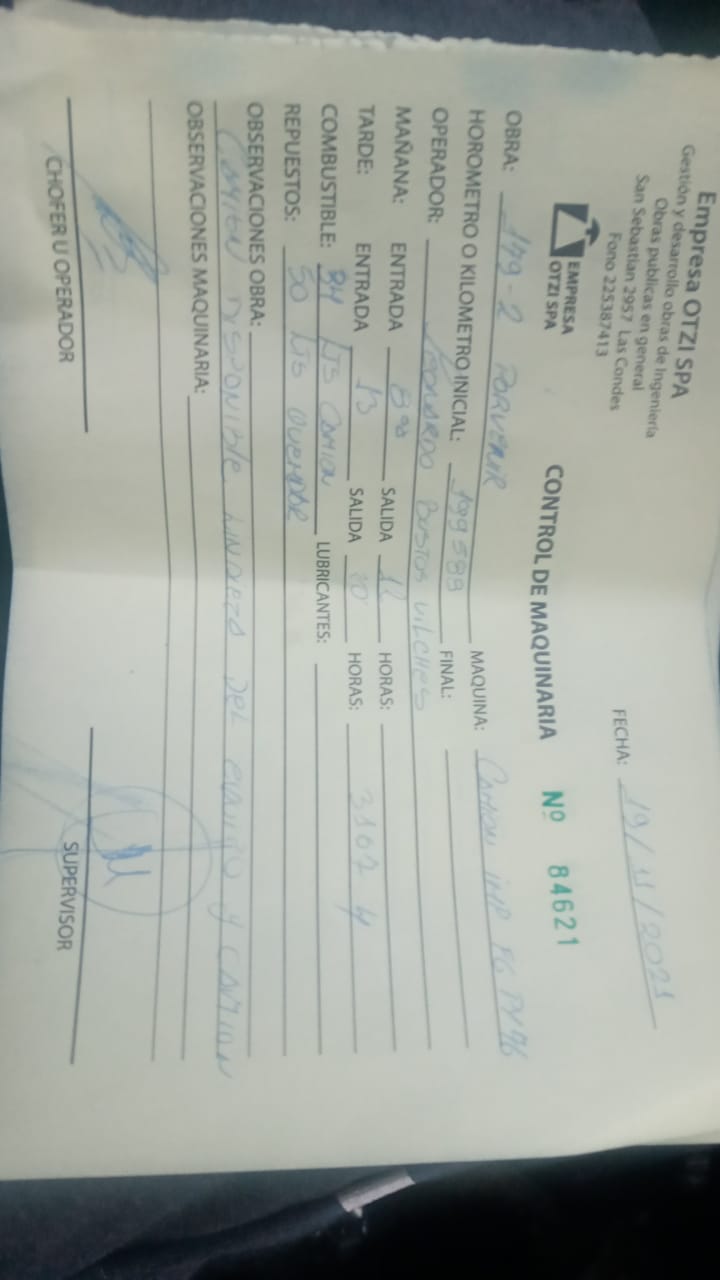 Empresa OTZI SPA
Gestión y desarrollo obras de Ingeniería
Obras publicas en general
San Sebastian 2957 Las Condes
Fono 225387413
EMPRESA
OTZI SPA
FECHA: 19/11/2021
CONTROL DE MAQUINARIA Nº 84621
OBRA: 179-2 PORVENIR MAQUINA: CAMION IMP FG PY 76
HOROMETRO O KILOMETRO INICIAL: 199588 FINAL:
OPERADOR: LEONARDO BUSTOS VILCHES
MAÑANA: ENTRADA 8 00 SALIDA 12 HORAS:
TARDE: ENTRADA 13 SALIDA 20 HORAS: 3107 4
COMBUSTIBLE: 84 LTS CAMION LUBRICANTES:
REPUESTOS: 50 LTS QUEMADOR
OBSERVACIONES OBRA:
CAMION DISPONIBLE DEL EQUIPO Y CAMION
OBSERVACIONES MAQUINARIA:
CHOFER U OPERADOR SUPERVISOR